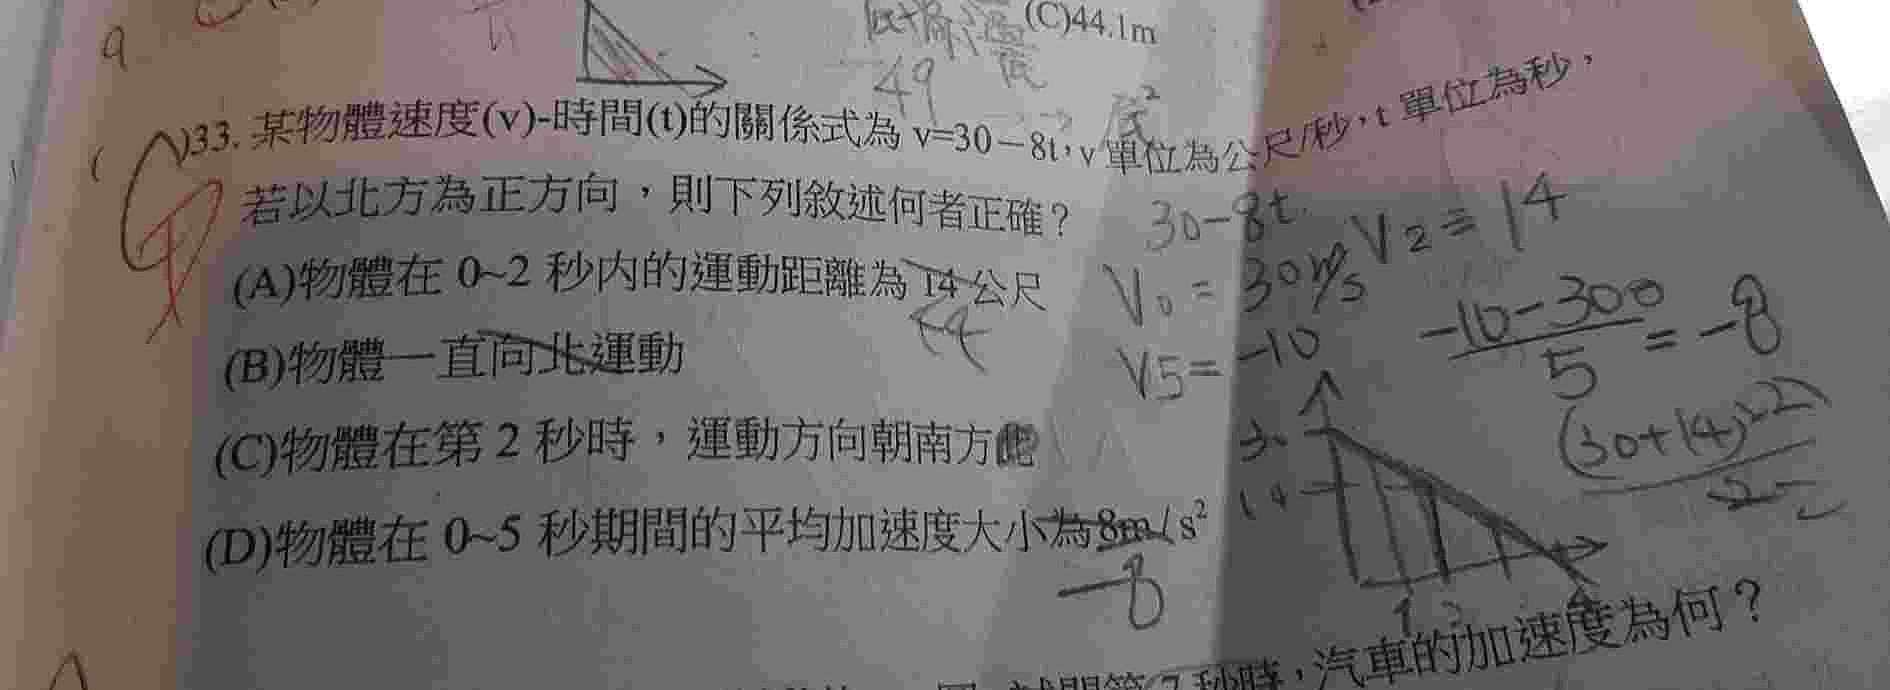 (C)44.1m
49
底²
( )33. 某物體速度(v)-時間(t)的關係式為 v=30－8t，v 單位為公尺/秒，t 單位為秒，
若以北方為正方向，則下列敘述何者正確？
30-8t
V2=14
(A)物體在 0~2 秒內的運動距離為 14 公尺
44
V0=30m/s
(B)物體一直向北運動
V5=-10
-10-300
5
=-8
(C)物體在第 2 秒時，運動方向朝南方
30
14
(30+14)×2
2
(D)物體在 0~5 秒期間的平均加速度大小為 8m/s²
-8
秒時，汽車的加速度為何？